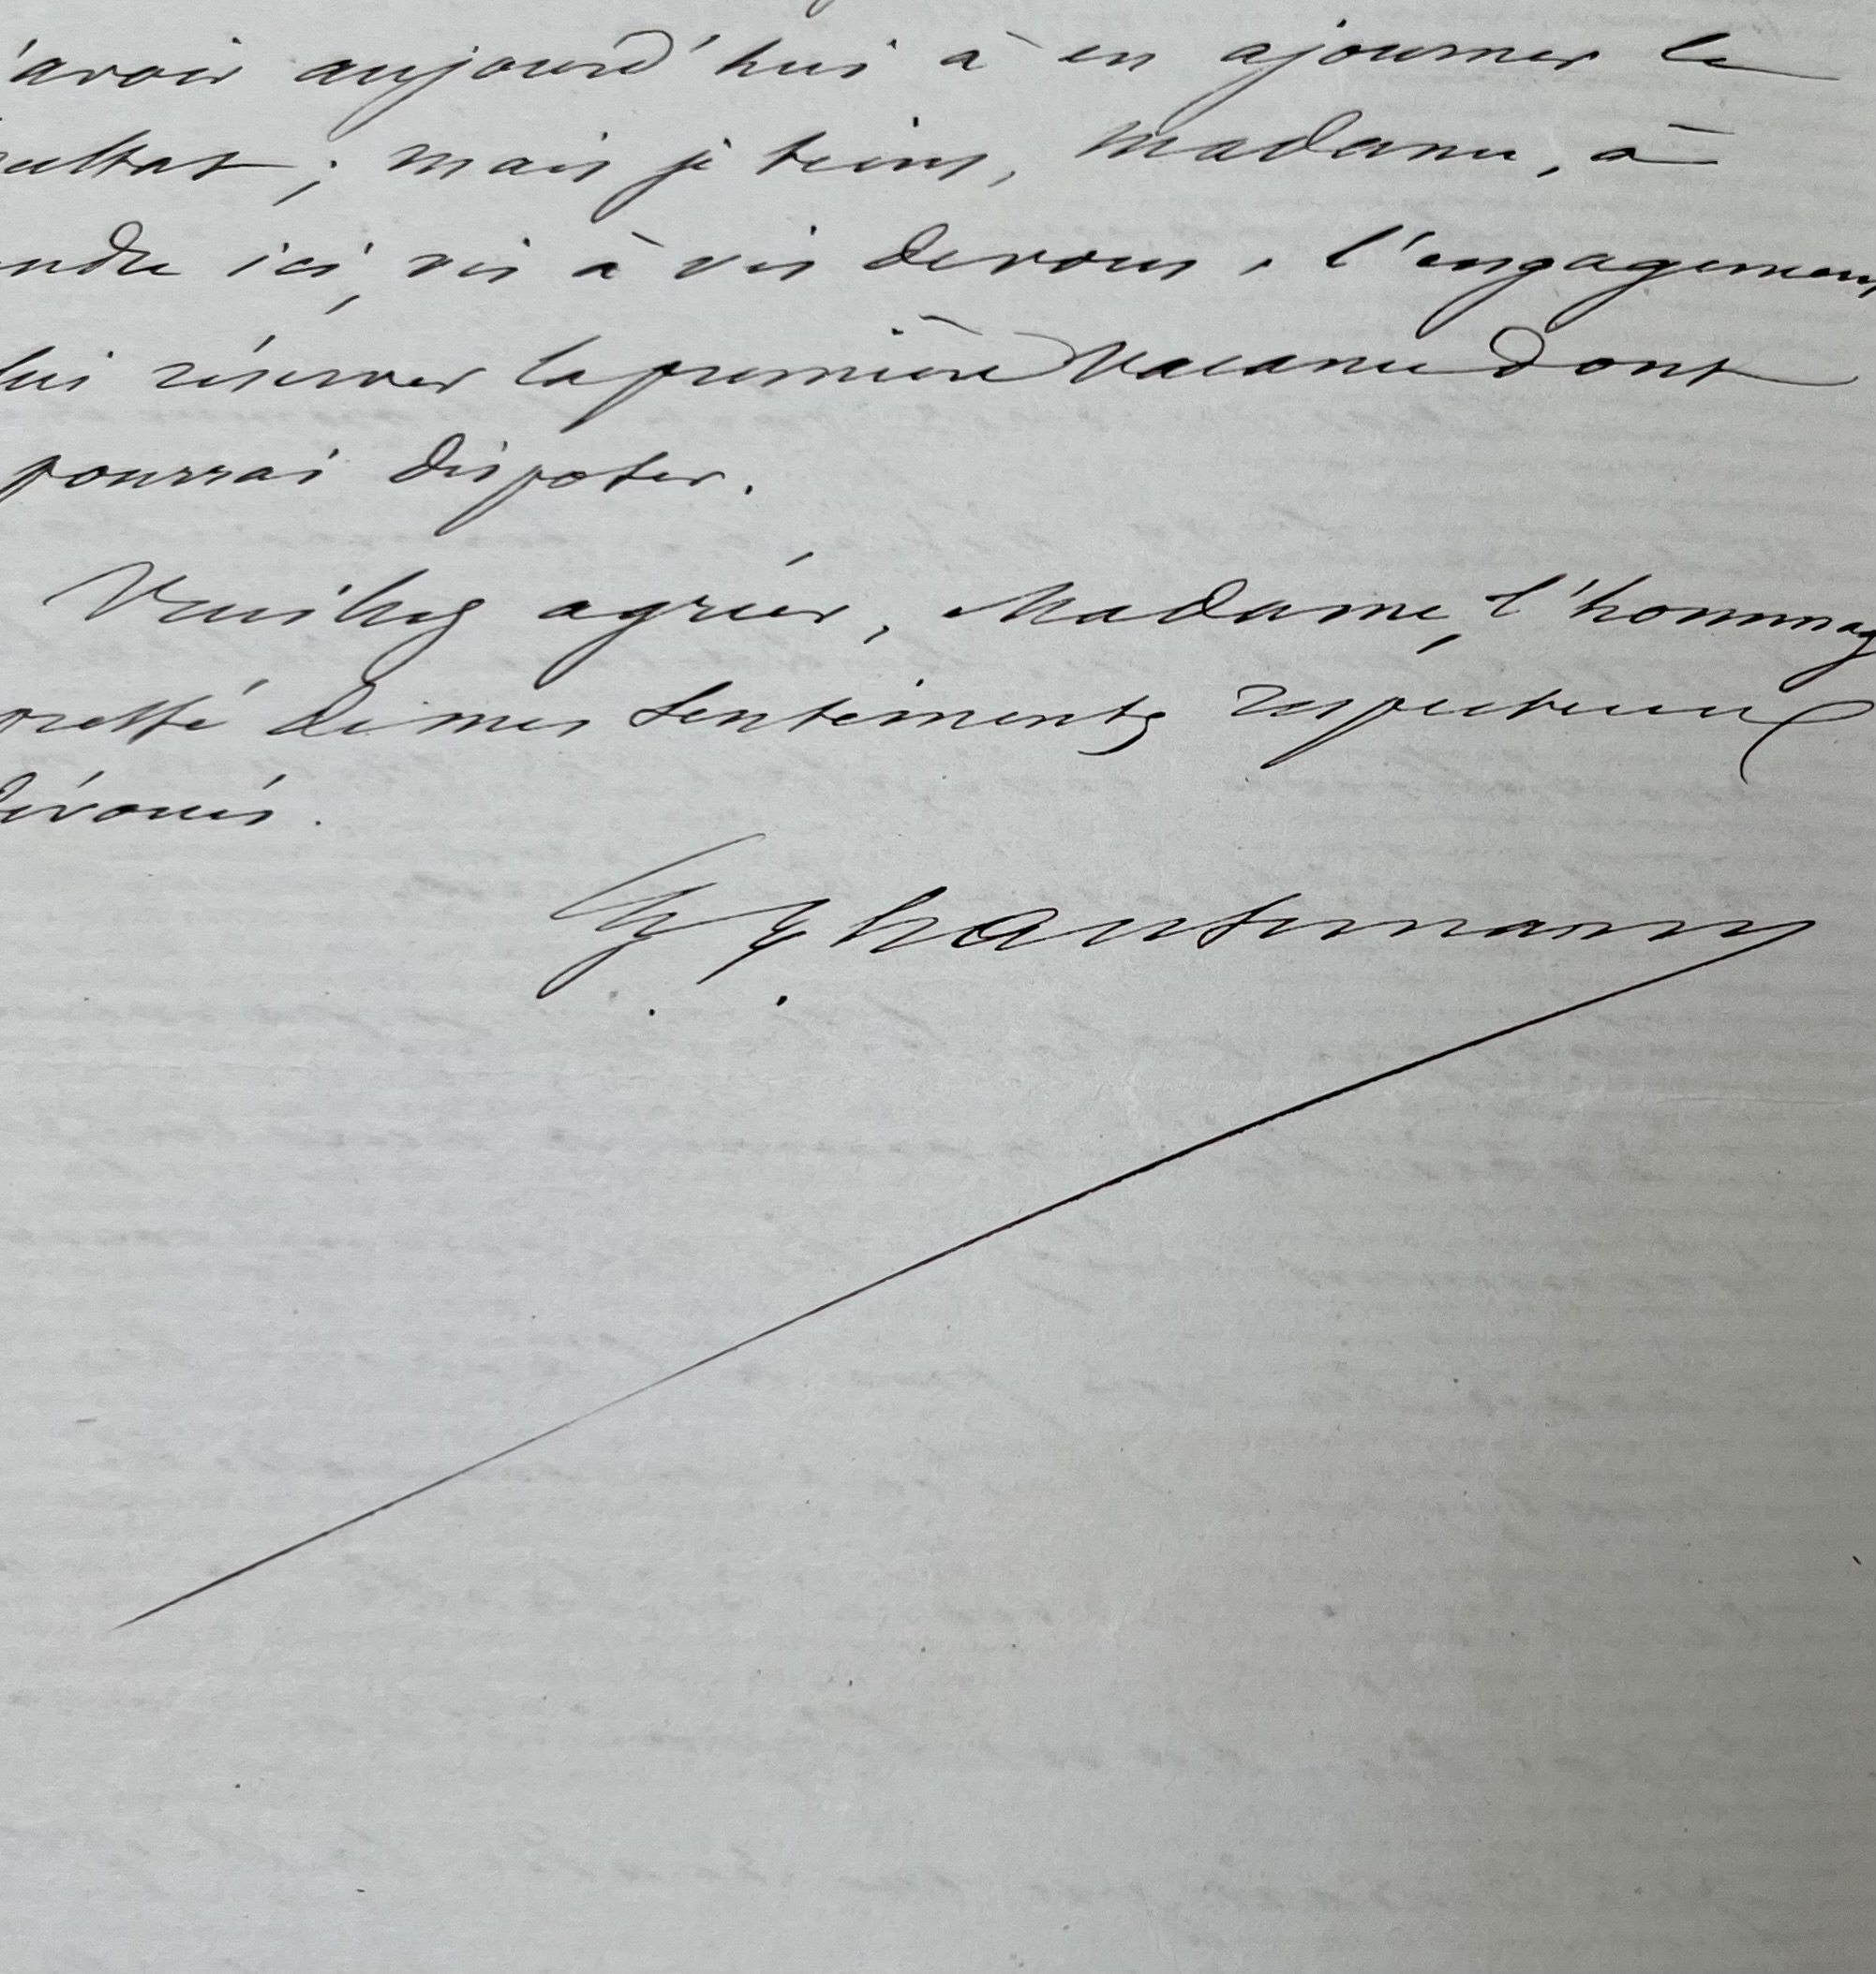 'avoir aujourd'hui à en ajourner le
sultat ; mais je tiens, Madame, à
endre ici, vis à vis de vous, l'engagement
lui réserver la première vacance dont
pourrai disposer.
Veuillez agréer, Madame, l'hommag
pressé de mes sentiments respectueux
dévoués.
G. E. Haussmann